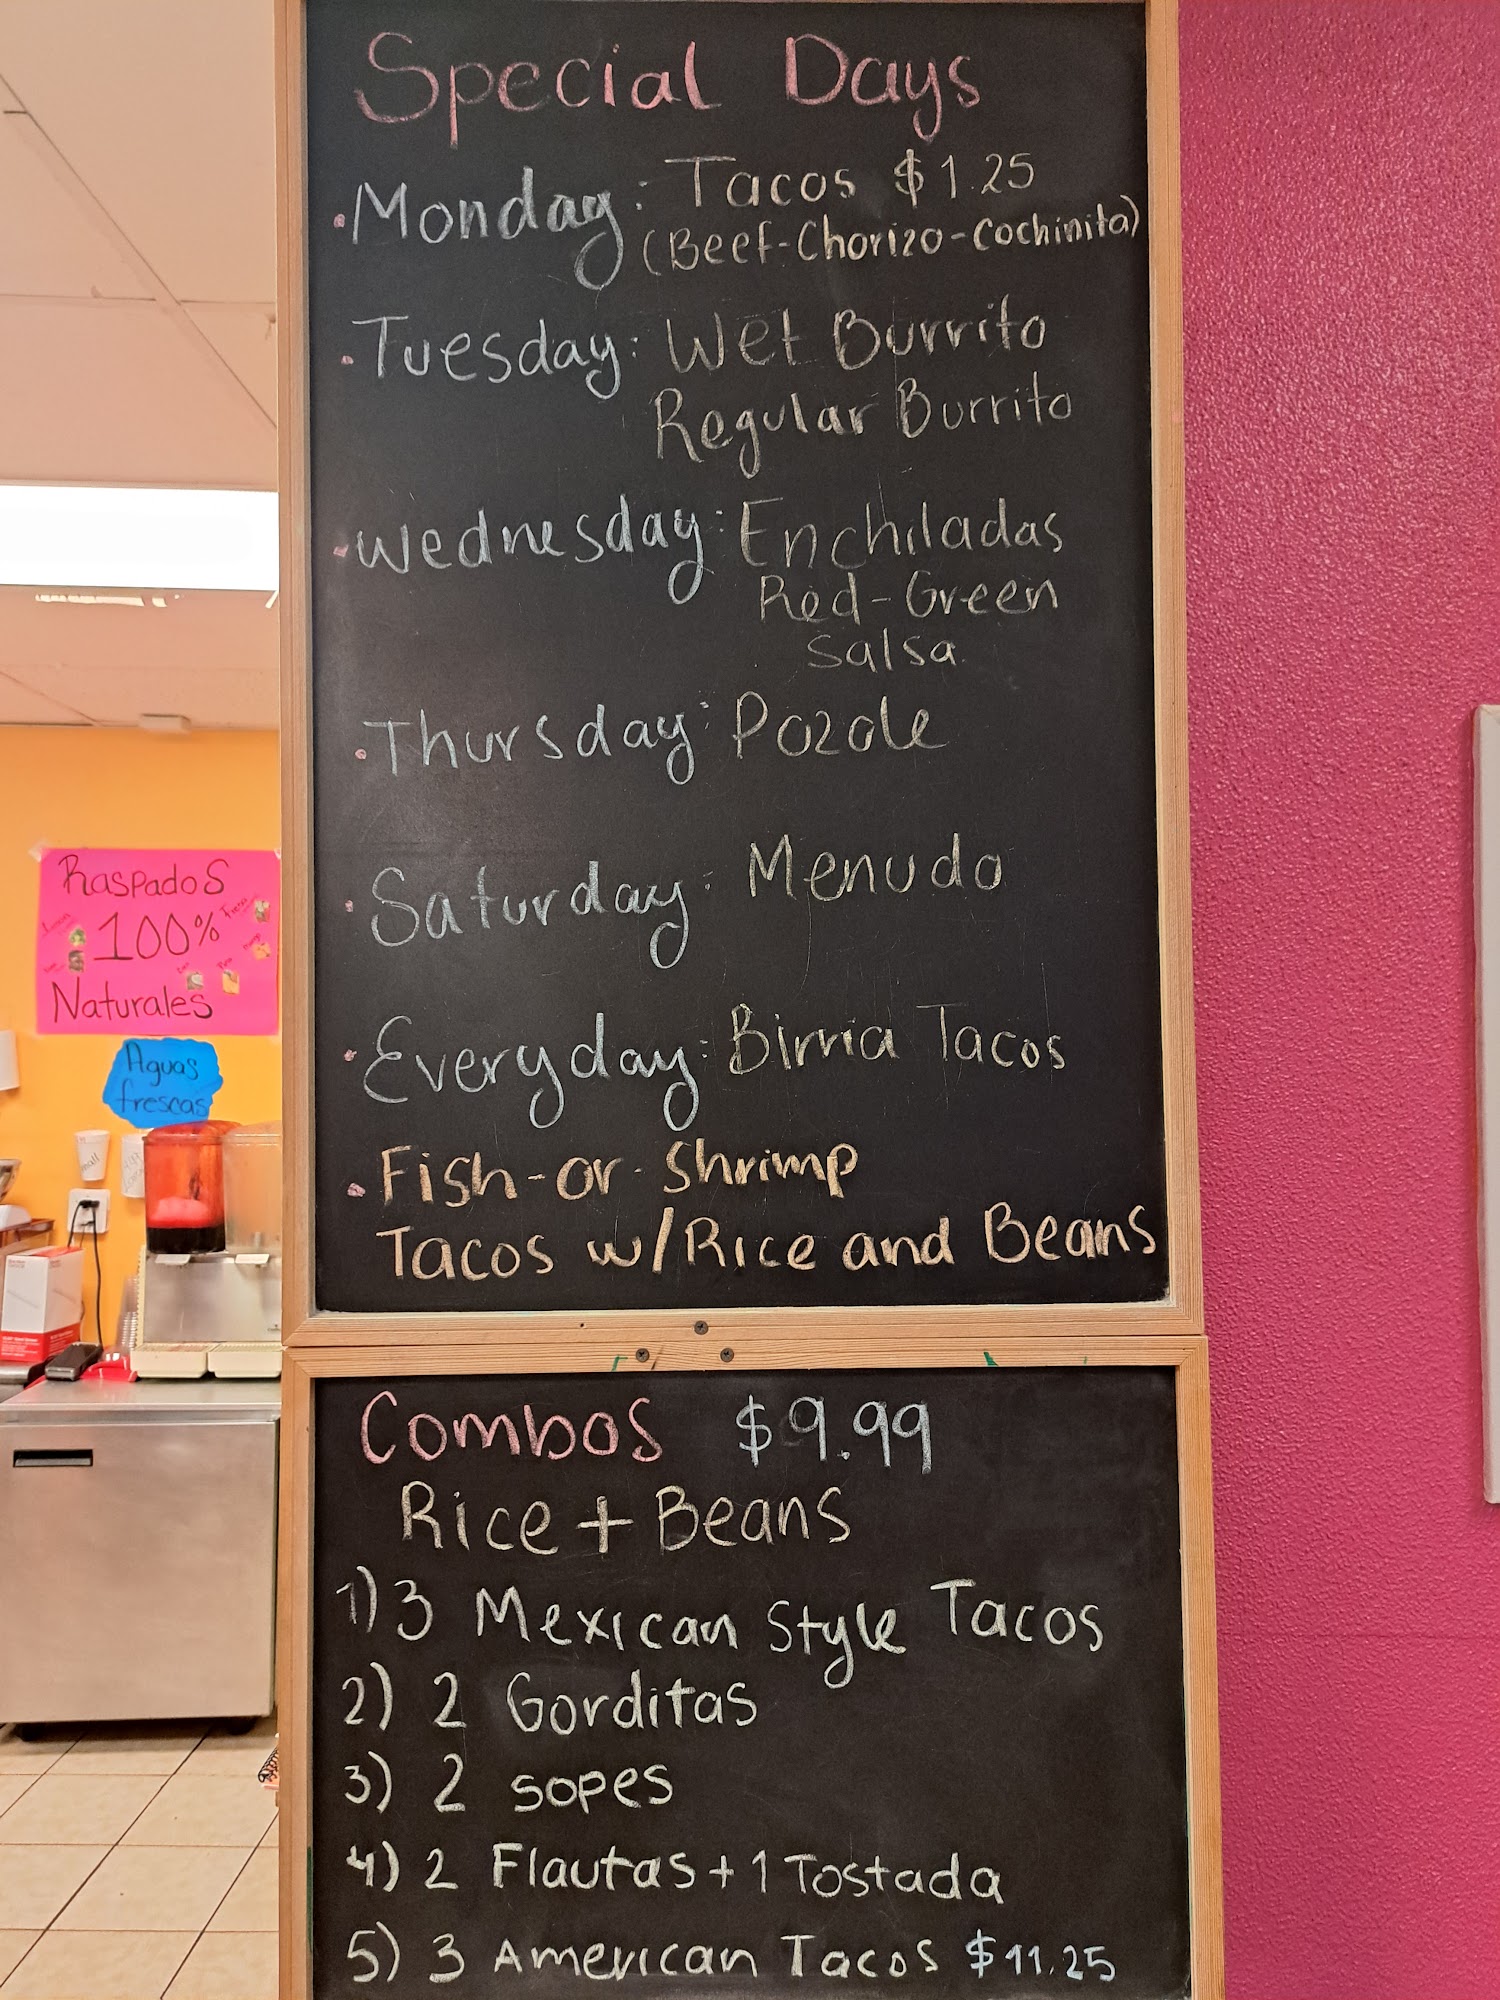 Special Days
• Monday: Tacos $1.25
(Beef-Chorizo-Cochinita)
• Tuesday: Wet Burrito
Regular Burrito
• Wednesday: Enchiladas
Red-Green
Salsa
• Thursday: Pozole
• Saturday: Menudo
• Everyday: Birria Tacos
• Fish-or-Shrimp
Tacos w/Rice and Beans
Combos $9.99
Rice + Beans
1) 3 Mexican Style Tacos
2) 2 Gorditas
3) 2 sopes
4) 2 Flautas + 1 Tostada
5) 3 American Tacos $11.25
Raspados
100%
Naturales
Aguas
frescas